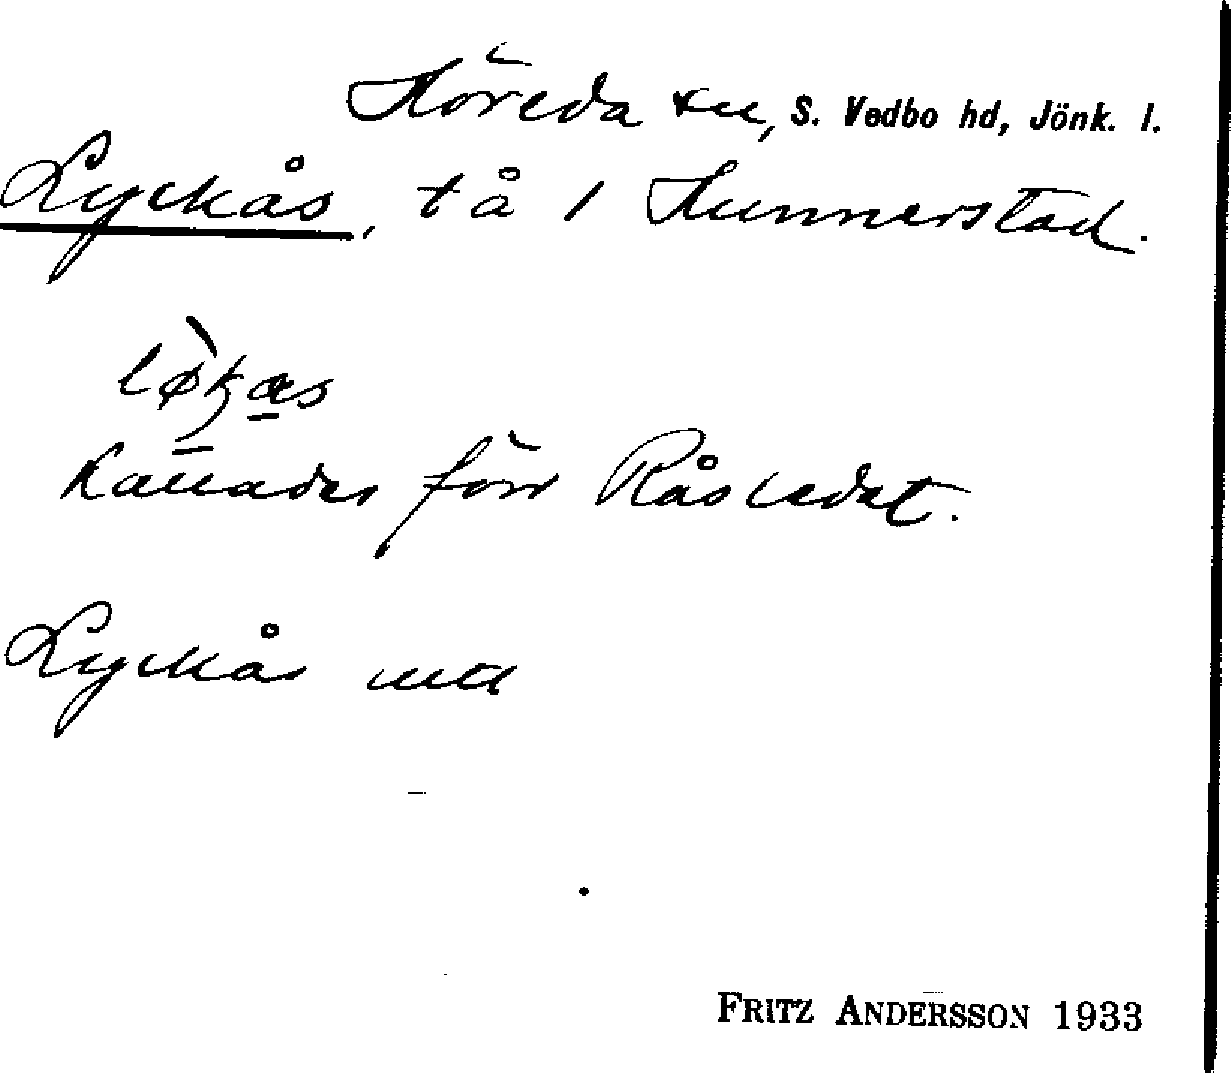 Höreda sn, S. Vedbo hd, Jönk. l.
Lyckås, tå / Hunnerstad.
Kallades förr Råsledet.
Lyckås
FRITZ ANDERSSON 1933